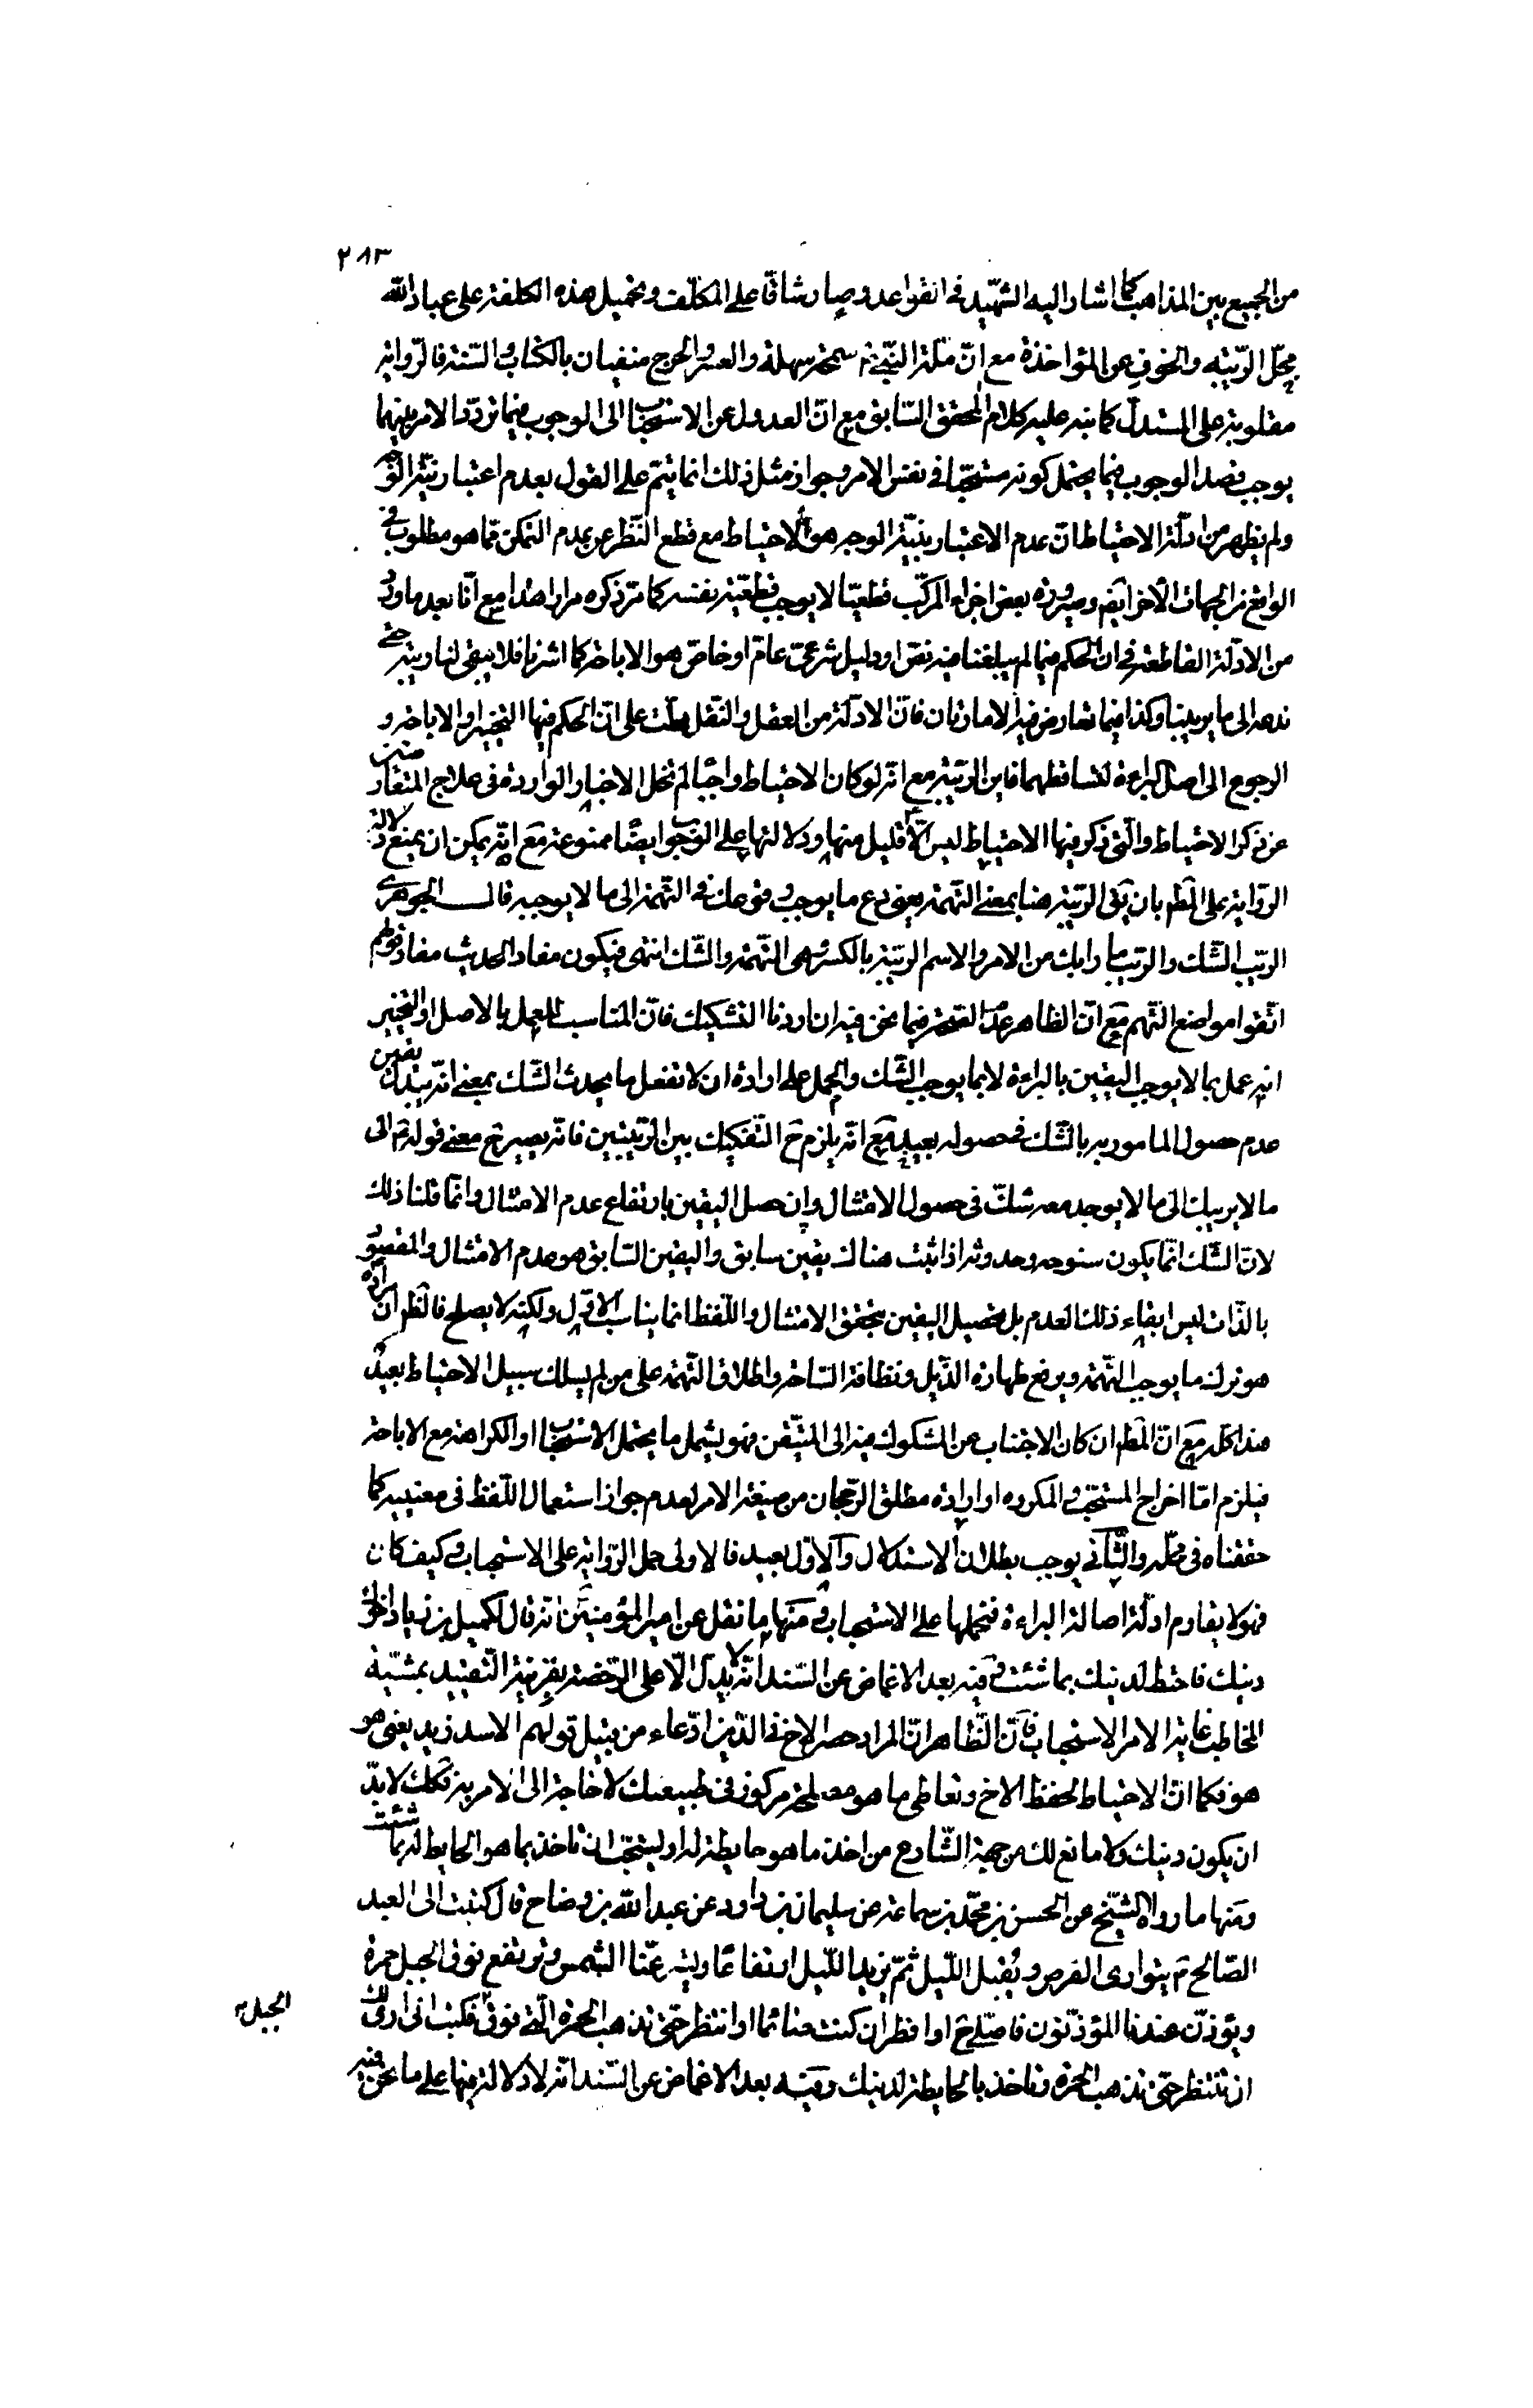 ٢٨٣
من الجميع بين المذاهب كما اشار اليه الشهيد فى القواعد وصار شاقا على المكلّف وتحميل هذه الكلفة على عباد الله
محلّ الرّيبة والخوف عن المؤاخذة مع انّ ملّة النّبىّ ص سمحة سهلة والعسر والحرج منفيان بالكتاب والسّنة فالرّواية
مقلوبة على المستدلّ كما نبه عليه كلام المحقق السّابق مع انّ العدول عن الاستحباب الى الوجوب فيما تردّد الامر بينهما
يوجب قصد الوجوب فيما يحتمل كونه مستحبّا فى نفس الامر وجواز مثل ذلك انما يتمّ على القول بعدم اعتبار نيّة الوجه
ولم يظهر من ادلّة الاحتياط ان عدم الاعتبار بنيّة الوجه هو الاحتياط مع قطع النّظر عن عدم التمكن ممّا هو مطلوب فى
الواقع من الجهات الأخر ايضم وصيرورة بعض اجزاء المركّب قطعيّا لا يوجب قطعيّة نفسه كما مرّ ذكره مرارا هذا مع انّا بعد ما ورد
من الادلّة القاطعة فى ان الحكم فيما لم يبلغنا فيه نصّ او دليل شرعىّ عامّ او خاصّ هو الاباحة كما اشرنا فلا يبقى لنا ريبة حتى
ندعه الى ما يريبنا وكذا فيما تعارض فيه الامارتان فانّ الادلّة من العقل والنّقل دلّت على انّ الحكم فيها التخيير او الاباحة و
الرجوع الى اصل البراءة لتساقطهما فاين الرّيبة مع انّه لو كان الاحتياط واجبًا لم تخل الاخبار الواردة فى علاج المتعارضين
عن ذكر الاحتياط والّتى ذكر فيها الاحتياط ليس الّا قليل منها ودلالتها على الوجوب ايضًا ممنوعة مع انّه يمكن ان يمنع دلالة
الرّواية على المط بان يق الرّيبة هنا بمعنى التّهمة يعنى دع ما يوجب وقوعك فى التّهمة الى ما لا يوجبه قال الجوهرى
الرّيب الشّك والرّيب ما رابك من الامر والاسم الرّيبة بالكسر وهى التّهمة والشّك انتهى فيكون مفاد الحديث مفاد قولهم
اتّقوا مواضع التّهم مع انّ الظاهر عدم الصّحة فيما نحن فيه ان اردنا التشكيك فانّ المناسب للعمل بالاصل او التخيير
انه عمل بما لا يوجب اليقين بالبراءة لا بما يوجب الشّك والحمل على ارادة ان لا تفعل ما يحدث الشّك بمعنى انّه يتبدّل يقين
عدم حصول المامور به بالشّك فى حصوله بعيد مع انّه يلزم ح التّفكيك بين الرّيبتين فانّه يصير ح معنى قوله ع الى
ما لا يريبك الى ما لا يوجد معه شكّ فى حصول الامتثال وان حصل اليقين بارتفاع عدم الامتثال وانّما قلنا ذلك
لانّ الشّك انّما يكون حدوثه اذا ثبت هناك يقين سابق واليقين السّابق هو عدم الامتثال والمقصود
بالذّات ليس ابقاء ذلك العدم بل تحصيل اليقين بتحقق الامتثال واللّفظ انما يناسب الاوّل ولكنّه لا يصلح فالظّ ان مراده
هو ترك ما يوجب التّهمة ويرفع طهارة الذّيل ونظافة السّاحة واطلاق التّهمة على من لم يسلك سبيل الاحتياط بعيد
هذا كله مع انّ المط ان كان الاجتناب عن المشكوك فيه الى المتيّقن فهو يشمل ما يحتمل الاستحباب او الكراهة مع الاباحة
فيلزم امّا اخراج المستحبّ والمكروه او ارادة مطلق الرّجحان من صيغة الامر لعدم جواز استعمال اللّفظ فى معنييه كما
حققناه فى محلّه والثّانى يوجب بطلان الاستدلال والاوّل بعيد فالاولى حمل الرّواية على الاستحباب وكيف كان
فهو لا يقاوم ادلّة اصالة البراءة فنحملها على الاستحباب ومنها ما نقل عن امير المؤمنين ع انه قال لكميل بن زياد اخوك
دينك فاحتط لدينك بما شئت وفيه بعد الاغماض عن السّند انّه لا يدلّ الّا على الرّخصة بقرينة التّقييد بمشيّة
المخاطب غاية الامر الاستحباب فانّ الظّاهر انّ المراد حصر الاخ فى الدّين ادّعاء من قبيل قولهم الاسد زيد يعنى هو
هو فكما انّ الاحتياط لحفظ الاخ وتعاطى ما هو مصلحة مركوز فى طبيعتك لا حاجة الى الامر به فكك لا بدّ
ان يكون دينك ولا مانع لك من جهة الشّارع من اخذ ما هو حايطة له او ليستحبّ ان تاخذ بما هو الحايط له بما شئت
ومنها ما رواه الشّيخ عن الحسن بن محمّد بن سماعة عن سليمان بن داود عن عبد الله بن وضاح قال كتبت الى العبد
الصّالح ع يتوارى القرص ويُقبل اللّيل ثمّ يزيد اللّيل ارتفاعًا ويستر عنّا الشّمس وترتفع فوق الجبل حمرة
ويؤذّن عندنا المؤذّنون فاصلّى ح او افطر ان كنت صائما او انتظر حتى تذهب الحمرة الّتى فوق فكتب انى ارى لك
الجبل
ان تنتظر حتى تذهب الحمرة وتاخذ بالحايطة لدينك وفيه بعد الاغماض عن السّند انّه لا دلالة فيها على ما نحن فيه